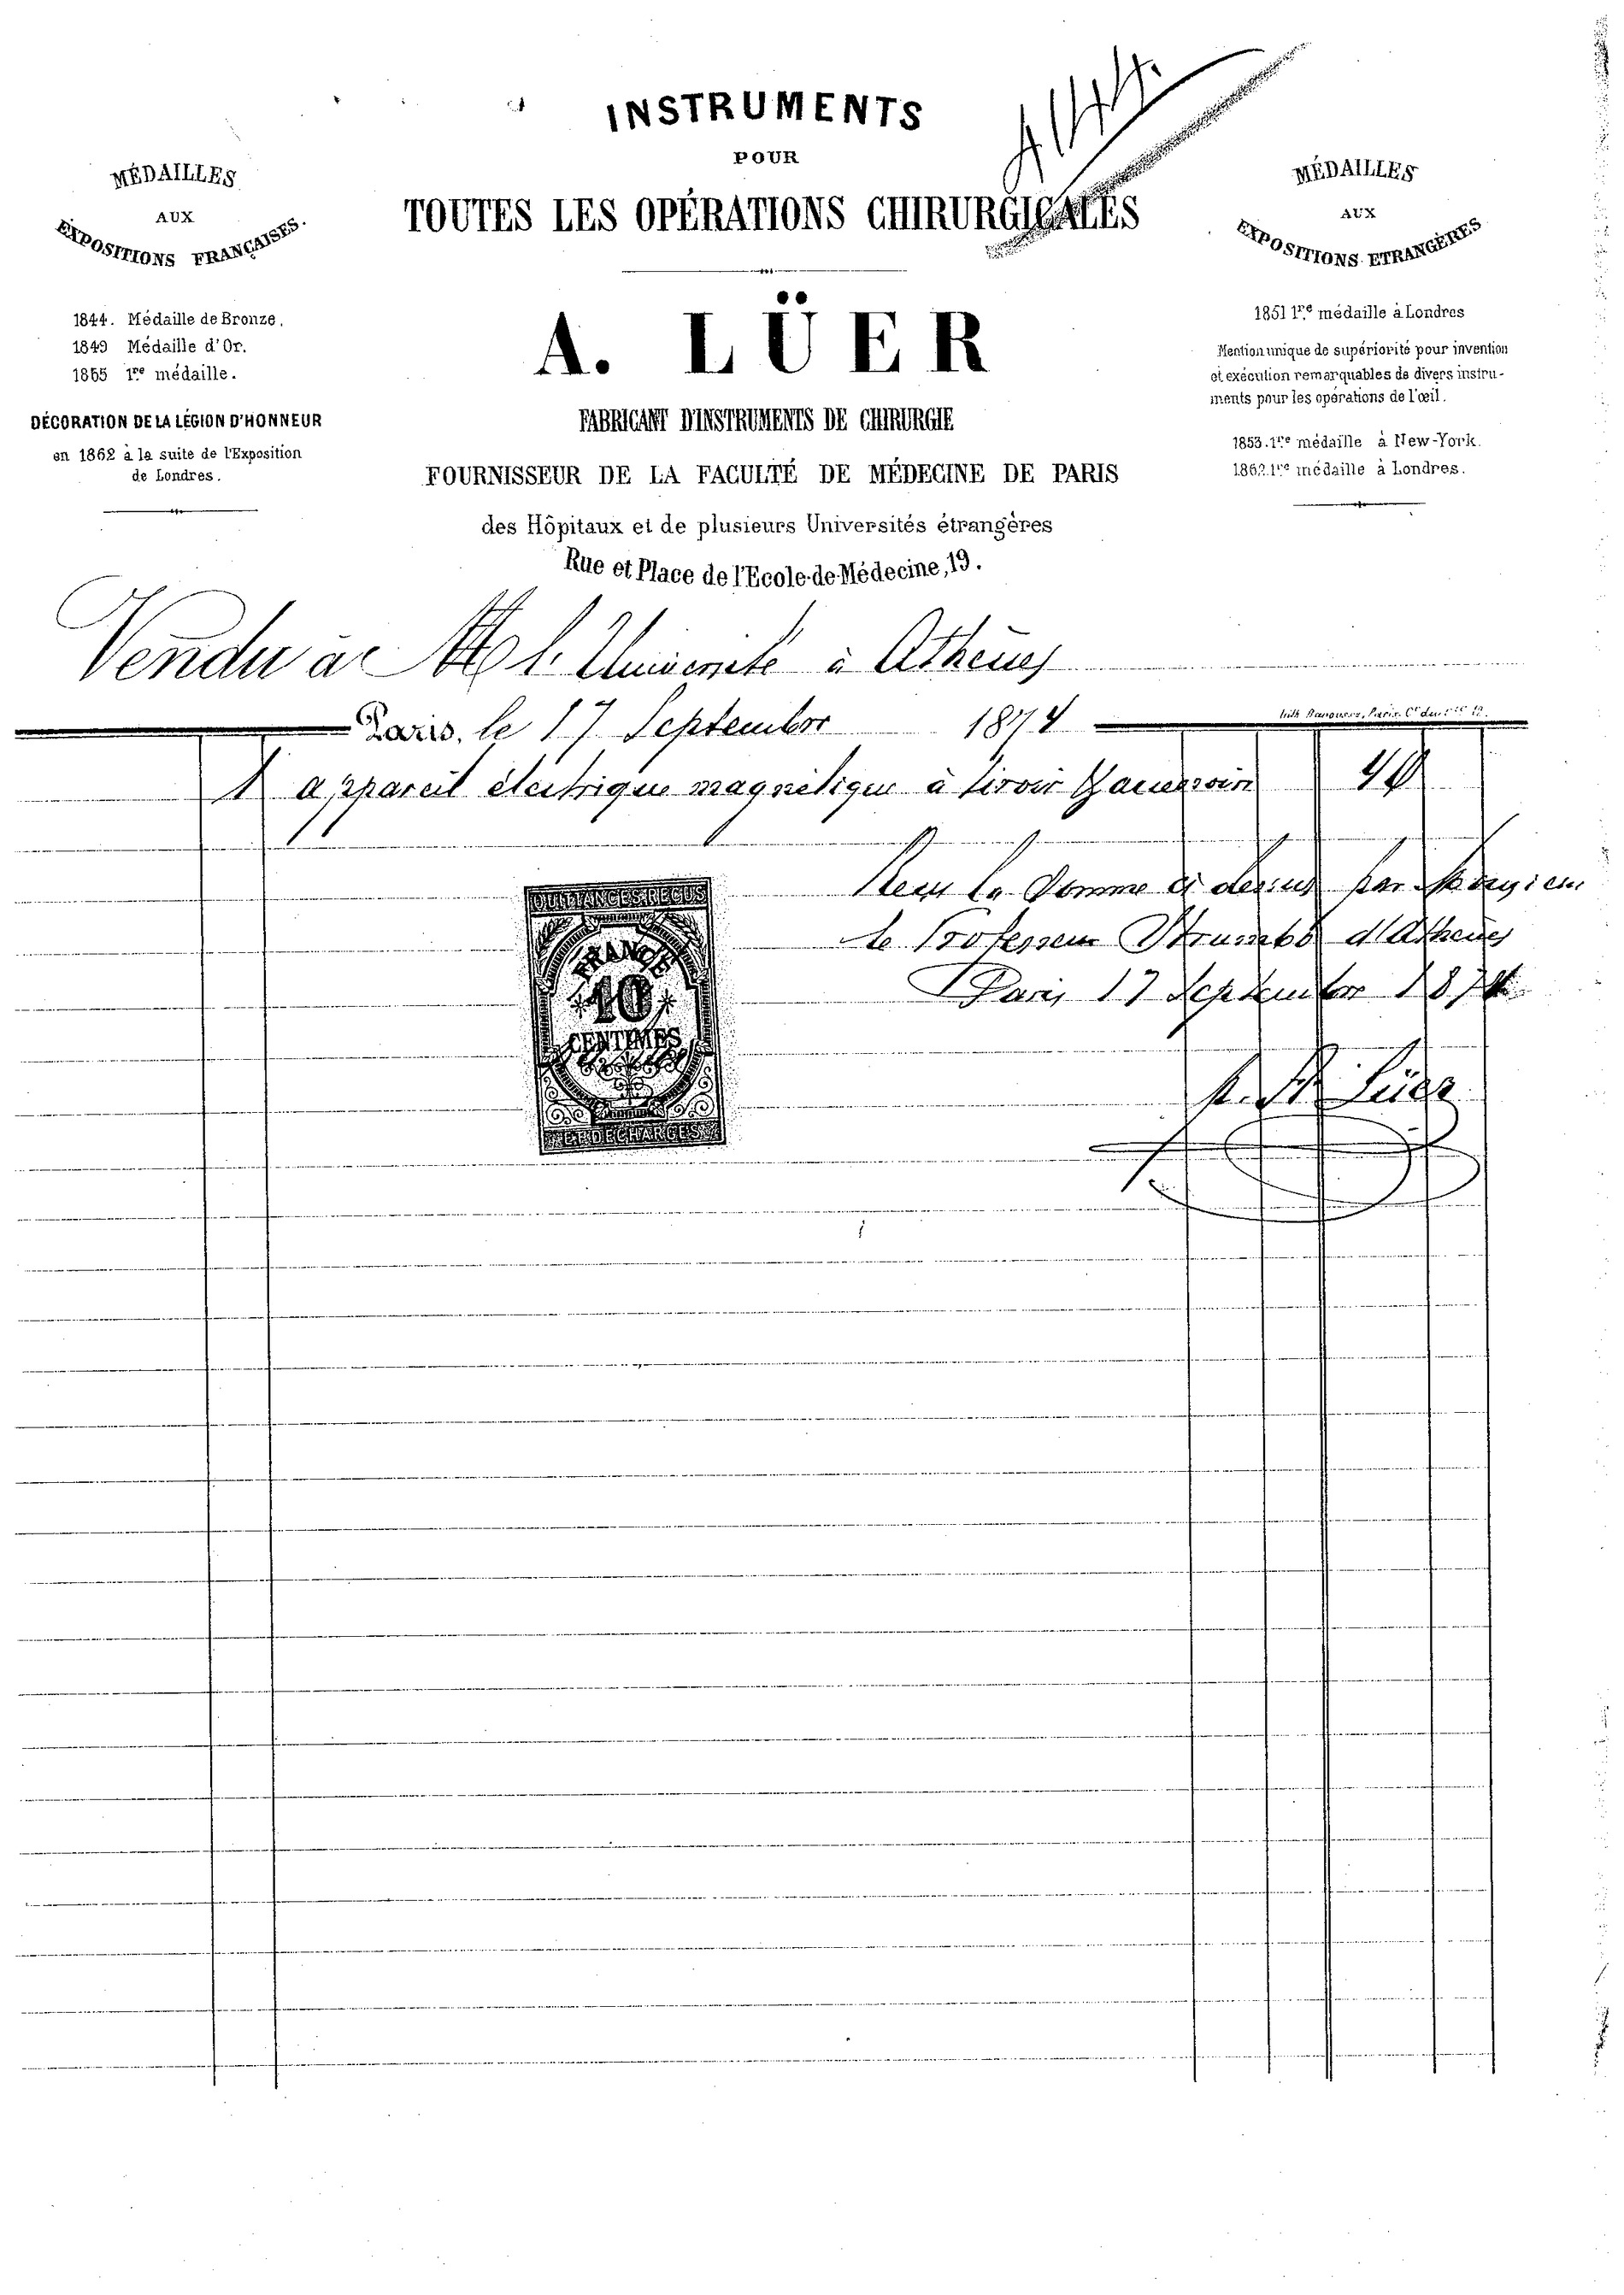 INSTRUMENTS
POUR
TOUTES LES OPÉRATIONS CHIRURGICALES
MÉDAILLES
AUX
EXPOSITIONS FRANÇAISES.
1844. Médaille de Bronze.
1849 Médaille d'Or.
1855 1re médaille.
DÉCORATION DE LA LÉGION D'HONNEUR
en 1862 à la suite de l'Exposition
de Londres.
A. LÜER
FABRICANT D'INSTRUMENTS DE CHIRURGIE
FOURNISSEUR DE LA FACULTÉ DE MÉDECINE DE PARIS
des Hôpitaux et de plusieurs Universités étrangères
Rue et Place de l'Ecole-de-Médecine, 19.
MÉDAILLES
AUX
EXPOSITIONS ETRANGÈRES
1851 1re médaille à Londres
Mention unique de supériorité pour invention
et exécution remarquables de divers instru-
ments pour les opérations de l'œil.
1853. 1re médaille à New-York.
1862. 1re médaille à Londres.
Vendu à M l'Université à Athènes
Paris, le 17 Septembre 1874
1 appareil électrique magnétique à tiroir
Reçu la Somme ci dessus par
le Professeur d'Athènes
Paris 17 Septembre 1874
p. A. Lüer
QUITTANCES REÇUS
FRANCE
10
CENTIMES
ET DÉCHARGES